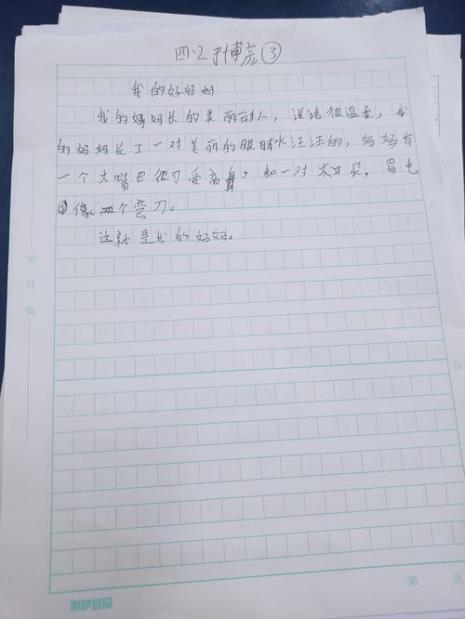 四.2 叶博完 ③
我的好妈妈
我的妈妈长的美丽动人，说话很温柔，我
的妈妈长了一对美丽的眼睛水汪汪的，妈妈有
一个大嘴巴很可爱高鼻，和一对大耳朵，眉毛
像两个弯刀。
这就是我的好妈。
装
订
线
第 页